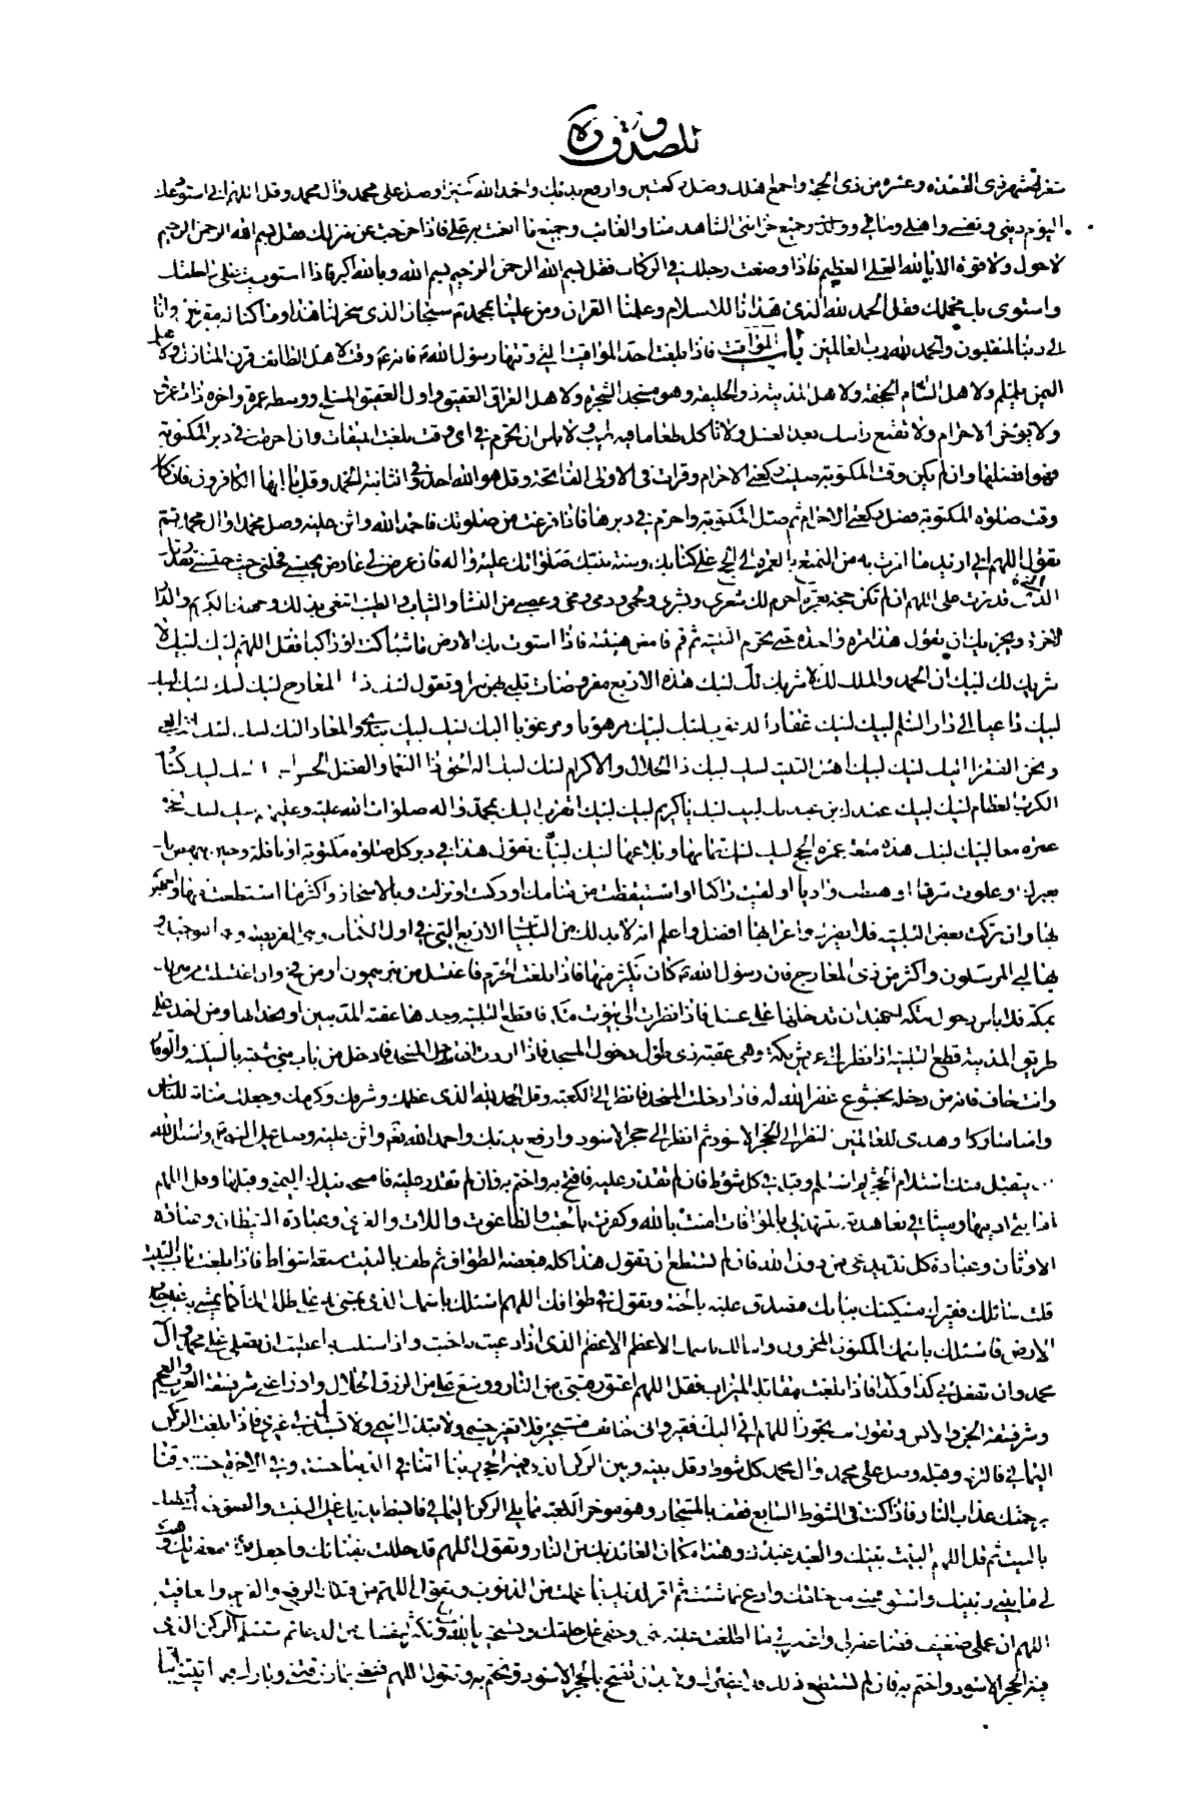 للصدوق ره
شعرك شهر ذي القعدة وعشرة من ذي الحجة واجمع اهلك وصل ركعتين وارفع يديك واحمد الله كثيرا وصل على محمد وآل محمد وقل اللهم اني استودعك
اليوم ديني ونفسي واهلي ومالي وولدي وجميع جيراني الشاهد منا والغائب وجميع ما انعمت به علي فاذا خرجت عن منزلك فقل بسم الله الرحمن الرحيم
لا حول ولا قوة الا بالله العلي العظيم فاذا وضعت رجلك في الركاب فقل بسم الله الرحمن الرحيم بسم الله وبالله والله اكبر فاذا استويت على راحلتك
واستوى بك محملك فقل الحمد لله الذي هدانا للاسلام وعلمنا القرآن ومن علينا بمحمد ص سبحان الذي سخر لنا هذا وما كنا له مقرنين وانا
الى ربنا لمنقلبون والحمد لله رب العالمين باب المواقيت فاذا بلغت احد المواقيت التي وقتها رسول الله ص فانه وقت لاهل الطائف قرن المنازل ولاهل
اليمن يلملم ولاهل الشام الجحفة ولاهل المدينة ذو الحليفة وهو مسجد الشجرة ولاهل العراق العقيق واول العقيق المسلخ ووسطه غمرة واخره ذات عرق
ولا يؤخر الاحرام ولا تقنع رأسك بعد الغسل ولا تأكل طعاما فيه طيب ولا باس ان تحرم في اي وقت بلغت الميقات وان احرمت في دبر المكتوبة
فهو افضلها وان لم يكن وقت المكتوبة صليت ركعتي الاحرام وقرأت في الاولى الفاتحة وقل هو الله احد وفي الثانية الحمد وقل يا ايها الكافرون فان كان
وقت صلوة المكتوبة فصل ركعتي الاحرام ثم صل المكتوبة واحرم في دبرها فاذا فرغت من صلوتك فاحمد الله واثن عليه وصل على محمد وآل محمد ثم
تقول اللهم اني اريد ما امرت به من التمتع بالعمرة الى الحج على كتابك وسنة نبيك صلواتك عليه وآله فان عرض لي عارض يحبسني فحلني حيث حبستني لقدرك
الذي قدرت علي اللهم ان لم تكن حجة فعمرة احرم لك شعري وبشري ولحمي ودمي ومخي وعصبي من النساء والثياب والطيب ابتغي بذلك وجهك الكريم والدار
الاخرة ويجزيك ان تقول هذا مرة واحدة حين تحرم ثم قم فامض هنيئة فاذا استوت بك الارض ماشيا كنت او راكبا فقل اللهم لبيك لبيك لا
شريك لك لبيك ان الحمد والملك لك لا شريك لك لبيك هذه الاربع مفروضات تلبي بهن سرا وتقول لبيك ذا المعارج لبيك لبيك لبيك
لبيك داعيا الى دار السلم لبيك لبيك غفار الذنوب لبيك لبيك مرهوبا ومرغوبا اليك لبيك لبيك تبدئ والمعاد اليك لبيك لبيك انت الغني
ونحن الفقراء اليك لبيك لبيك اهل التلبية لبيك لبيك ذا الجلال والاكرام لبيك لبيك اله الحق ذا النعماء والفضل الحسن لبيك لبيك كشاف
الكرب العظام لبيك لبيك عبدك ابن عبديك لبيك لبيك يا كريم لبيك لبيك اتقرب اليك بمحمد وآله صلوات الله عليه وعليهم لبيك لبيك بحجة
عمرة معا لبيك لبيك هذه متعة عمرة الحج لبيك لبيك تمامها وبلاغها لبيك لبيك تقول هذا في دبر كل صلوة مكتوبة او نافلة وحين ينهض بك
بعيرك وعلوت شرفا او هبطت واديا او لقيت راكبا او استيقظت من منامك او ركبت او نزلت وبالاسحار واكثر ما استطعت منها واجهر
بها وان تركت بعض التلبية فلا يضرك غير انها افضل واعلم انه لا بد لك من التلبيات الاربع التي في اول الكتاب وهي الفريضة وهي التوحيد
بها لبى المرسلون واكثر من ذي المعارج فان رسول الله ص كان يكثر منها فاذا بلغت الحرم فاغتسل من بئر ميمون او من فخ وان اغتسلت من منزلك
بمكة فلا باس دخول مكة اجهد ان تدخلها على غسل فاذا نظرت الى بيوت مكة فاقطع التلبية وحدها عقبة المدنيين او بحذائها ومن اخذ على
طريق المدينة قطع التلبية اذا نظر الى عريش مكة وهي عقبة ذي طوى دخول المسجد فاذا اردت ان تدخل المسجد فادخل من باب بني شيبة بالسكينة والوقار
وانت حاف فانه من دخله بخشوع غفر الله له فاذا دخلت المسجد فانظر الى الكعبة وقل الحمد لله الذي عظمك وشرفك وكرمك وجعلك مثابة للناس
وامنا مباركا وهدى للعالمين النظر الى الحجر الاسود ثم انظر الى حجر الاسود وارفع يديك واحمد الله تعالى واثن عليه وصل على النبي ص واسئل الله
ان يتقبل منك استلام الحجر ثم استلم وقبله في كل شوط فان لم تقدر عليه فافتح به واختم به فان لم تقدر عليه فامسحه بيدك اليمنى وقبلها وقل اللهم
امانتي اديتها وميثاقي تعاهدته لتشهد لي بالموافات امنت بالله وكفرت بالجبت والطاغوت واللات والعزى وعبادة الشيطان وعبادة
الاوثان وعبادة كل ند يدعى من دون الله فان لم تستطع ان تقول هذا كله فبعضه الطواف ثم طف بالبيت سبعة اشواط فاذا بلغت باب البيت
قلت سائلك فقيرك مسكينك ببابك فتصدق عليه بالجنة وتقول في طوافك اللهم اسئلك باسمك الذي يمشى به على طلل الماء كما يمشى به على جدد
الارض فاسئلك باسمك المكنون المخزون واسئلك باسمك الاعظم الاعظم الذي اذا دعيت به اجبت واذا سئلت به اعطيت ان تصلي على محمد وآل
محمد وان تفعل بي كذا وكذا فاذا بلغت مقابلة الميزاب فقل اللهم اعتق رقبتي من النار ووسع علي من الرزق الحلال وادرأ عني شر فسقة العرب والعجم
وشر فسقة الجن والانس وتقول ست تجوز اللهم اني اليك فقير واني خائف مستجير فلا تغير جسمي ولا تبدل اسمي ولا تستبدل بي غيري فاذا بلغت الركن
اليماني فالتزمه وقبله وصل على محمد وآل محمد كل شوط وقل بينه وبين الركن الذي فيه الحجر ربنا اتنا في الدنيا حسنة وفي الاخرة حسنة وقنا
برحمتك عذاب النار فاذا كنت في الشوط السابع فقف بالمستجار وهو مؤخر الكعبة مما يلي الركن اليماني فابسط يديك على البيت والصق خدك وبطنك
بالبيت ثم قل اللهم البيت بيتك والعبد عبدك وهذا مكان العائذ بك من النار وتقول اللهم قد حللت بفنائك واجعل قراي مغفرتك وهب
لي ما بيني وبينك واستوهبني من خلقك وادع بما شئت ثم اقر لربك بما عملت من الذنوب وتقول اللهم من قبلك الروح والفرج والعافية
اللهم ان عملي ضعيف فضاعفه لي واغفر لي ما اطلعت عليه مني وخفي على خلقك وتستجير بالله من النار وتكثر لنفسك من الدعاء ثم تستلم الركن الذي
فيه الحجر الاسود واختم به فان لم تستطع ذلك فلا يضرك ولا بد ان تفتتح بالحجر الاسود وتختم به وتقول اللهم قنعني بما رزقتني وبارك لي فيما اتيتني